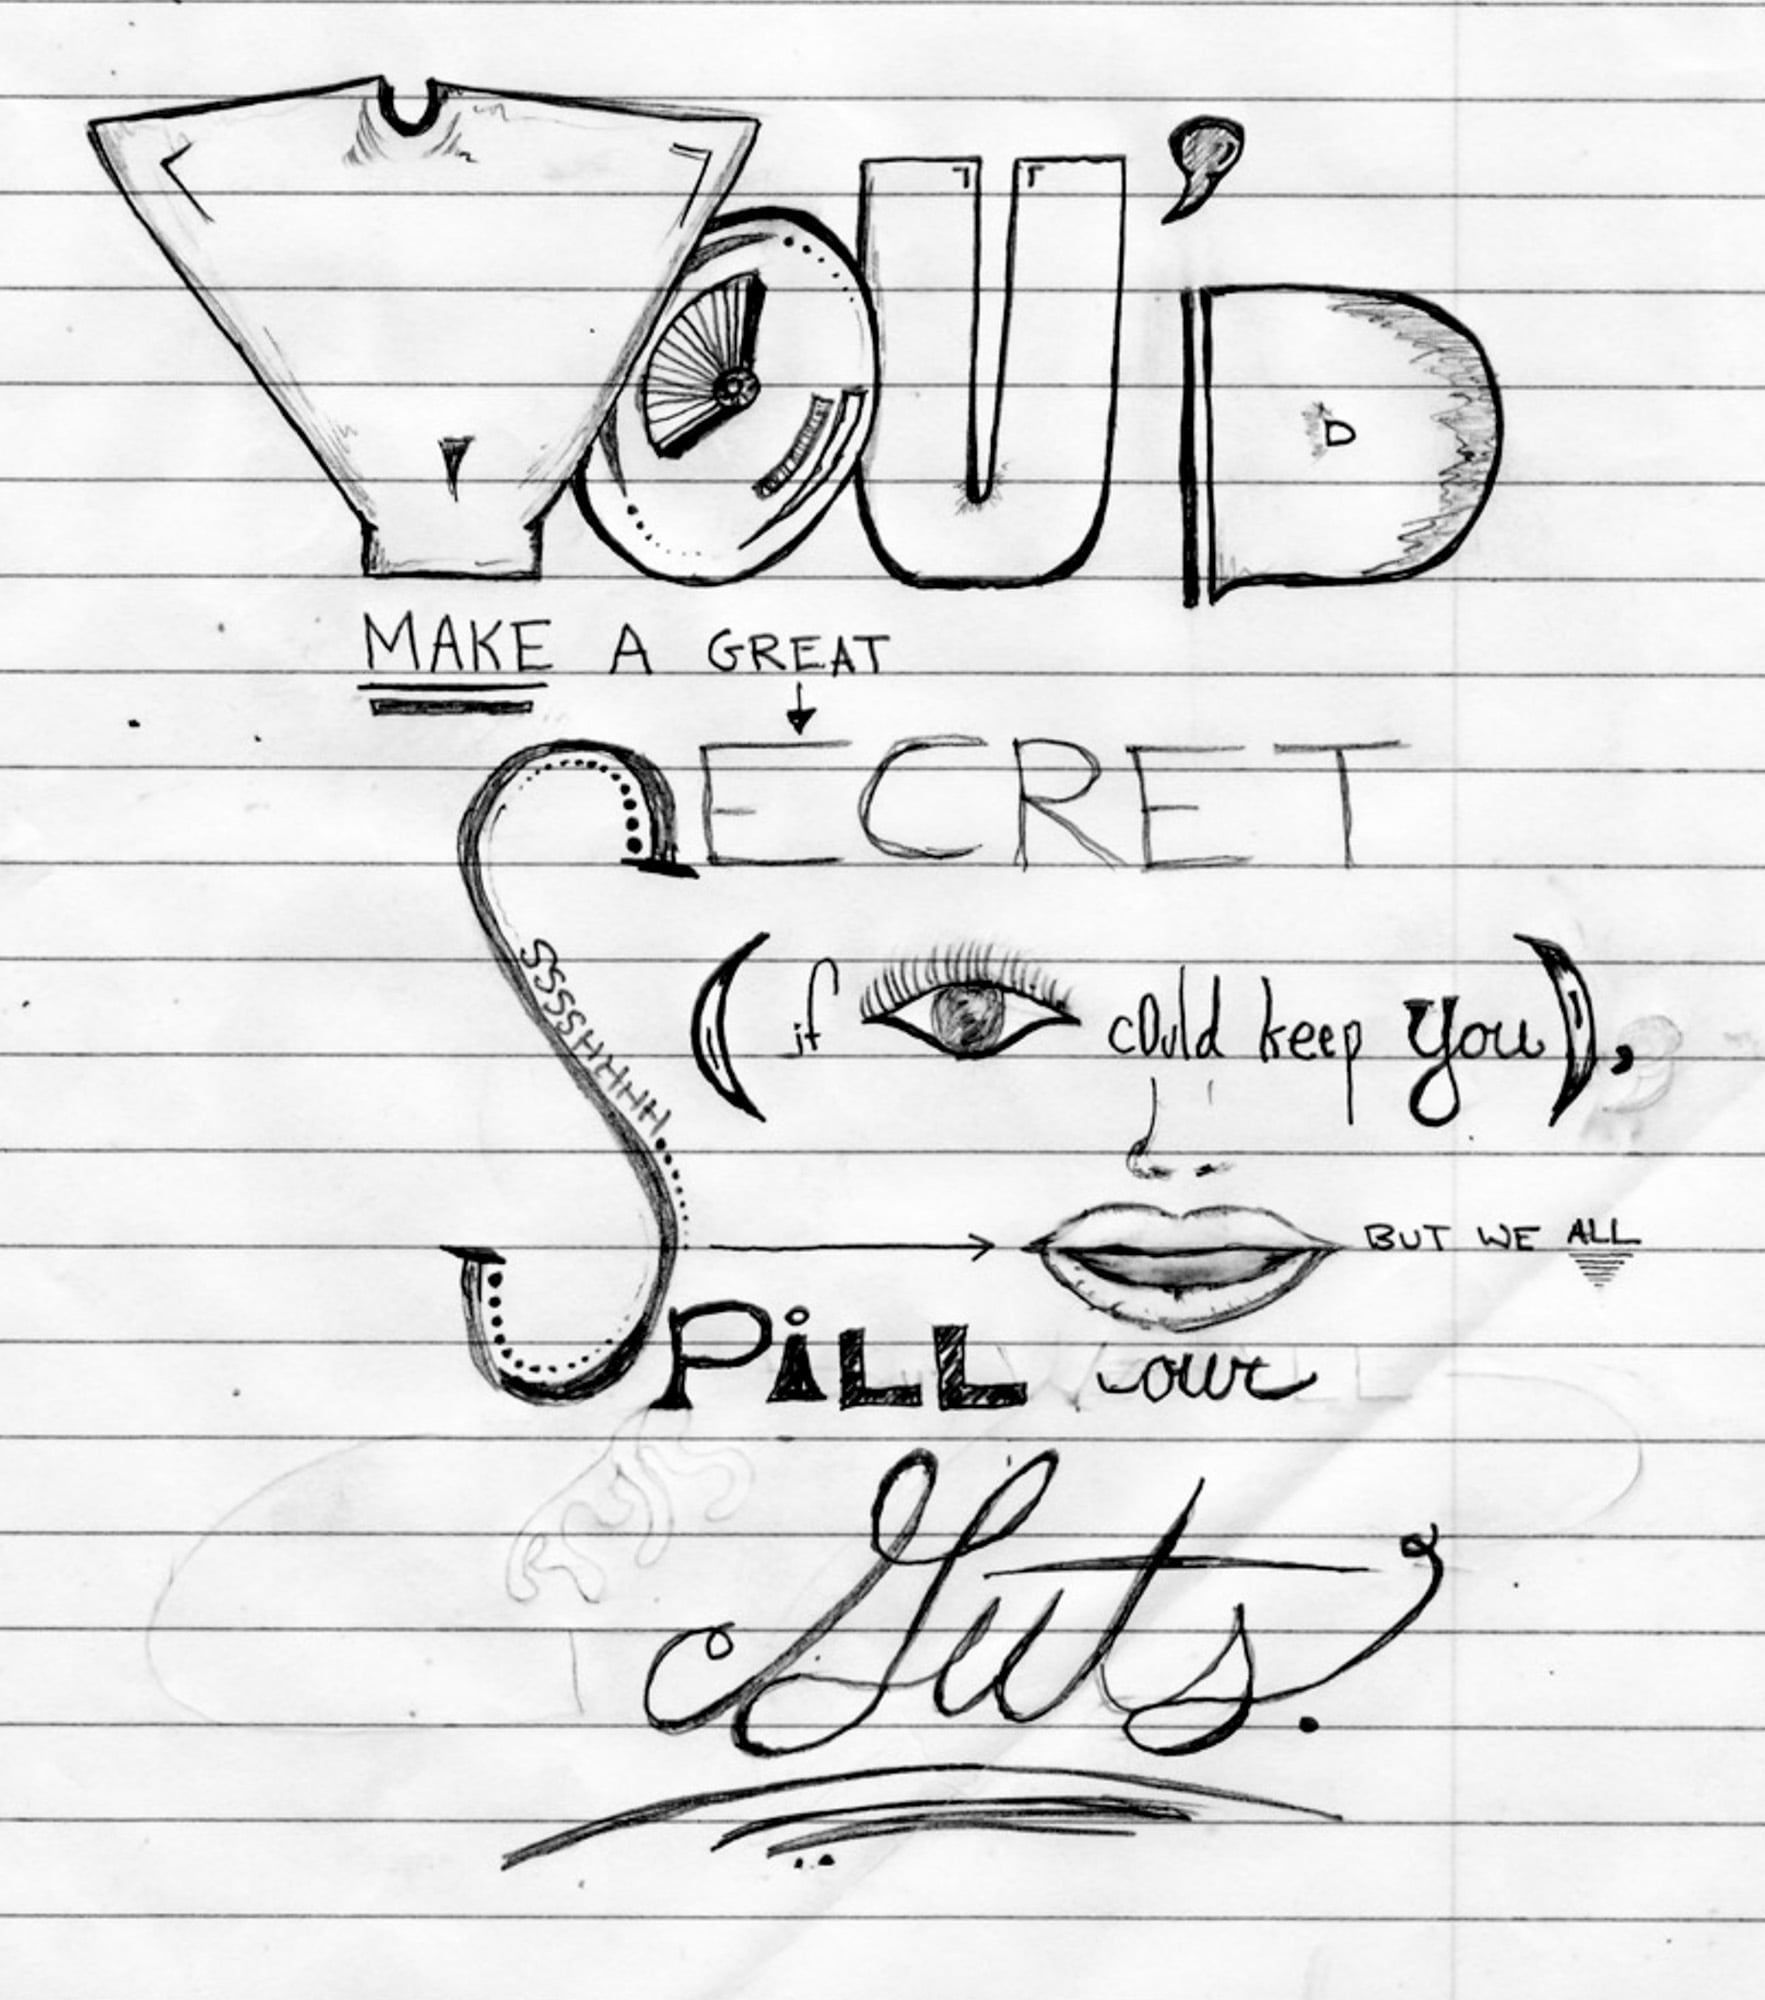 YOU'D
MAKE A GREAT
SECRET
SSSSHHHHH
(if could keep you),
BUT WE ALL
SPiLL our
Guts.